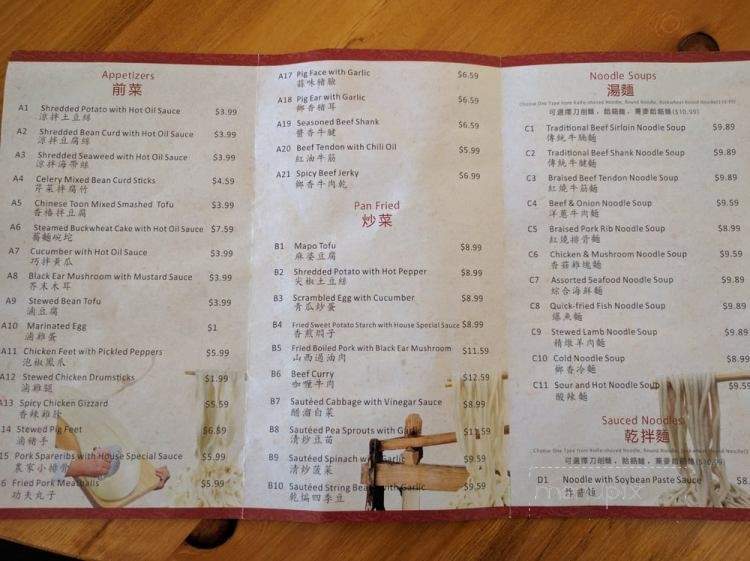 Appetizers
前菜
A1 Shredded Potato with Hot Oil Sauce $3.99
涼拌土豆絲
A2 Shredded Bean Curd with Hot Oil Sauce $3.99
涼拌豆腐絲
A3 Shredded Seaweed with Hot Oil Sauce $3.99
涼拌海帶絲
A4 Celery Mixed Bean Curd Sticks $4.59
芹菜拌腐竹
A5 Chinese Toon Mixed Smashed Tofu $3.99
香椿拌豆腐
A6 Steamed Buckwheat Cake with Hot Oil Sauce $7.59
蕎麵碗坨
A7 Cucumber with Hot Oil Sauce $3.99
巧拌黃瓜
A8 Black Ear Mushroom with Mustard Sauce $3.99
芥末木耳
A9 Stewed Bean Tofu $3.99
滷豆腐
A10 Marinated Egg $1
滷雞蛋
A11 Chicken Feet with Pickled Peppers $5.99
泡椒鳳爪
A12 Stewed Chicken Drumsticks $1.99
滷雞腿
A13 Spicy Chicken Gizzard $5.59
香辣雞胗
14 Stewed Pig Feet $6.59
滷豬手
15 Pork Spareribs with House Special Sauce $5.99
農家小排骨
6 Fried Pork Meatballs $5.99
功夫丸子
A17 Pig Face with Garlic $6.59
蒜味豬臉
A18 Pig Ear with Garlic $6.59
鄉香豬耳
A19 Seasoned Beef Shank $6.99
醬香牛腱
A20 Beef Tendon with Chili Oil $5.99
紅油牛筋
A21 Spicy Beef Jerky $6.99
鄉香牛肉乾
Pan Fried
炒菜
B1 Mapo Tofu $8.99
麻婆豆腐
B2 Shredded Potato with Hot Pepper $8.99
尖椒土豆絲
B3 Scrambled Egg with Cucumber $8.99
青瓜炒蛋
B4 Fried Sweet Potato Starch with House Special Sauce $8.99
香煎燜子
B5 Fried Boiled Pork with Black Ear Mushroom $11.59
山西過油肉
B6 Beef Curry $12.59
咖喱牛肉
B7 Sautéed Cabbage with Vinegar Sauce $8.99
醋溜白菜
B8 Sautéed Pea Sprouts with Garlic $11.59
清炒豆苗
B9 Sautéed Spinach with Garlic $9.59
清炒菠菜
B10 Sautéed String Beans with Garlic $9.59
乾煸四季豆
Noodle Soups
湯麵
可選擇刀削麵，餄餎麵，蕎麥餄餎麵($10.99)
C1 Traditional Beef Sirloin Noodle Soup $9.89
傳統牛腩麵
C2 Traditional Beef Shank Noodle Soup $9.89
傳統牛腱麵
C3 Braised Beef Tendon Noodle Soup $9.89
紅燒牛筋麵
C4 Beef & Onion Noodle Soup $9.59
洋蔥牛肉麵
C5 Braised Pork Rib Noodle Soup $8.99
紅燒排骨麵
C6 Chicken & Mushroom Noodle Soup $9.59
香菇雞塊麵
C7 Assorted Seafood Noodle Soup $9.89
綜合海鮮麵
C8 Quick-fried Fish Noodle Soup $9.89
爆魚麵
C9 Stewed Lamb Noodle Soup $9.89
精燉羊肉麵
C10 Cold Noodle Soup $8.99
鄉香冷麵
C11 Sour and Hot Noodle Soup $9.59
酸辣麵
Sauced Noodles
乾拌麵
可選擇刀削麵，餄餎麵，蕎麥餄餎麵($10.99)
D1 Noodle with Soybean Paste Sauce $8.
炸醬麵